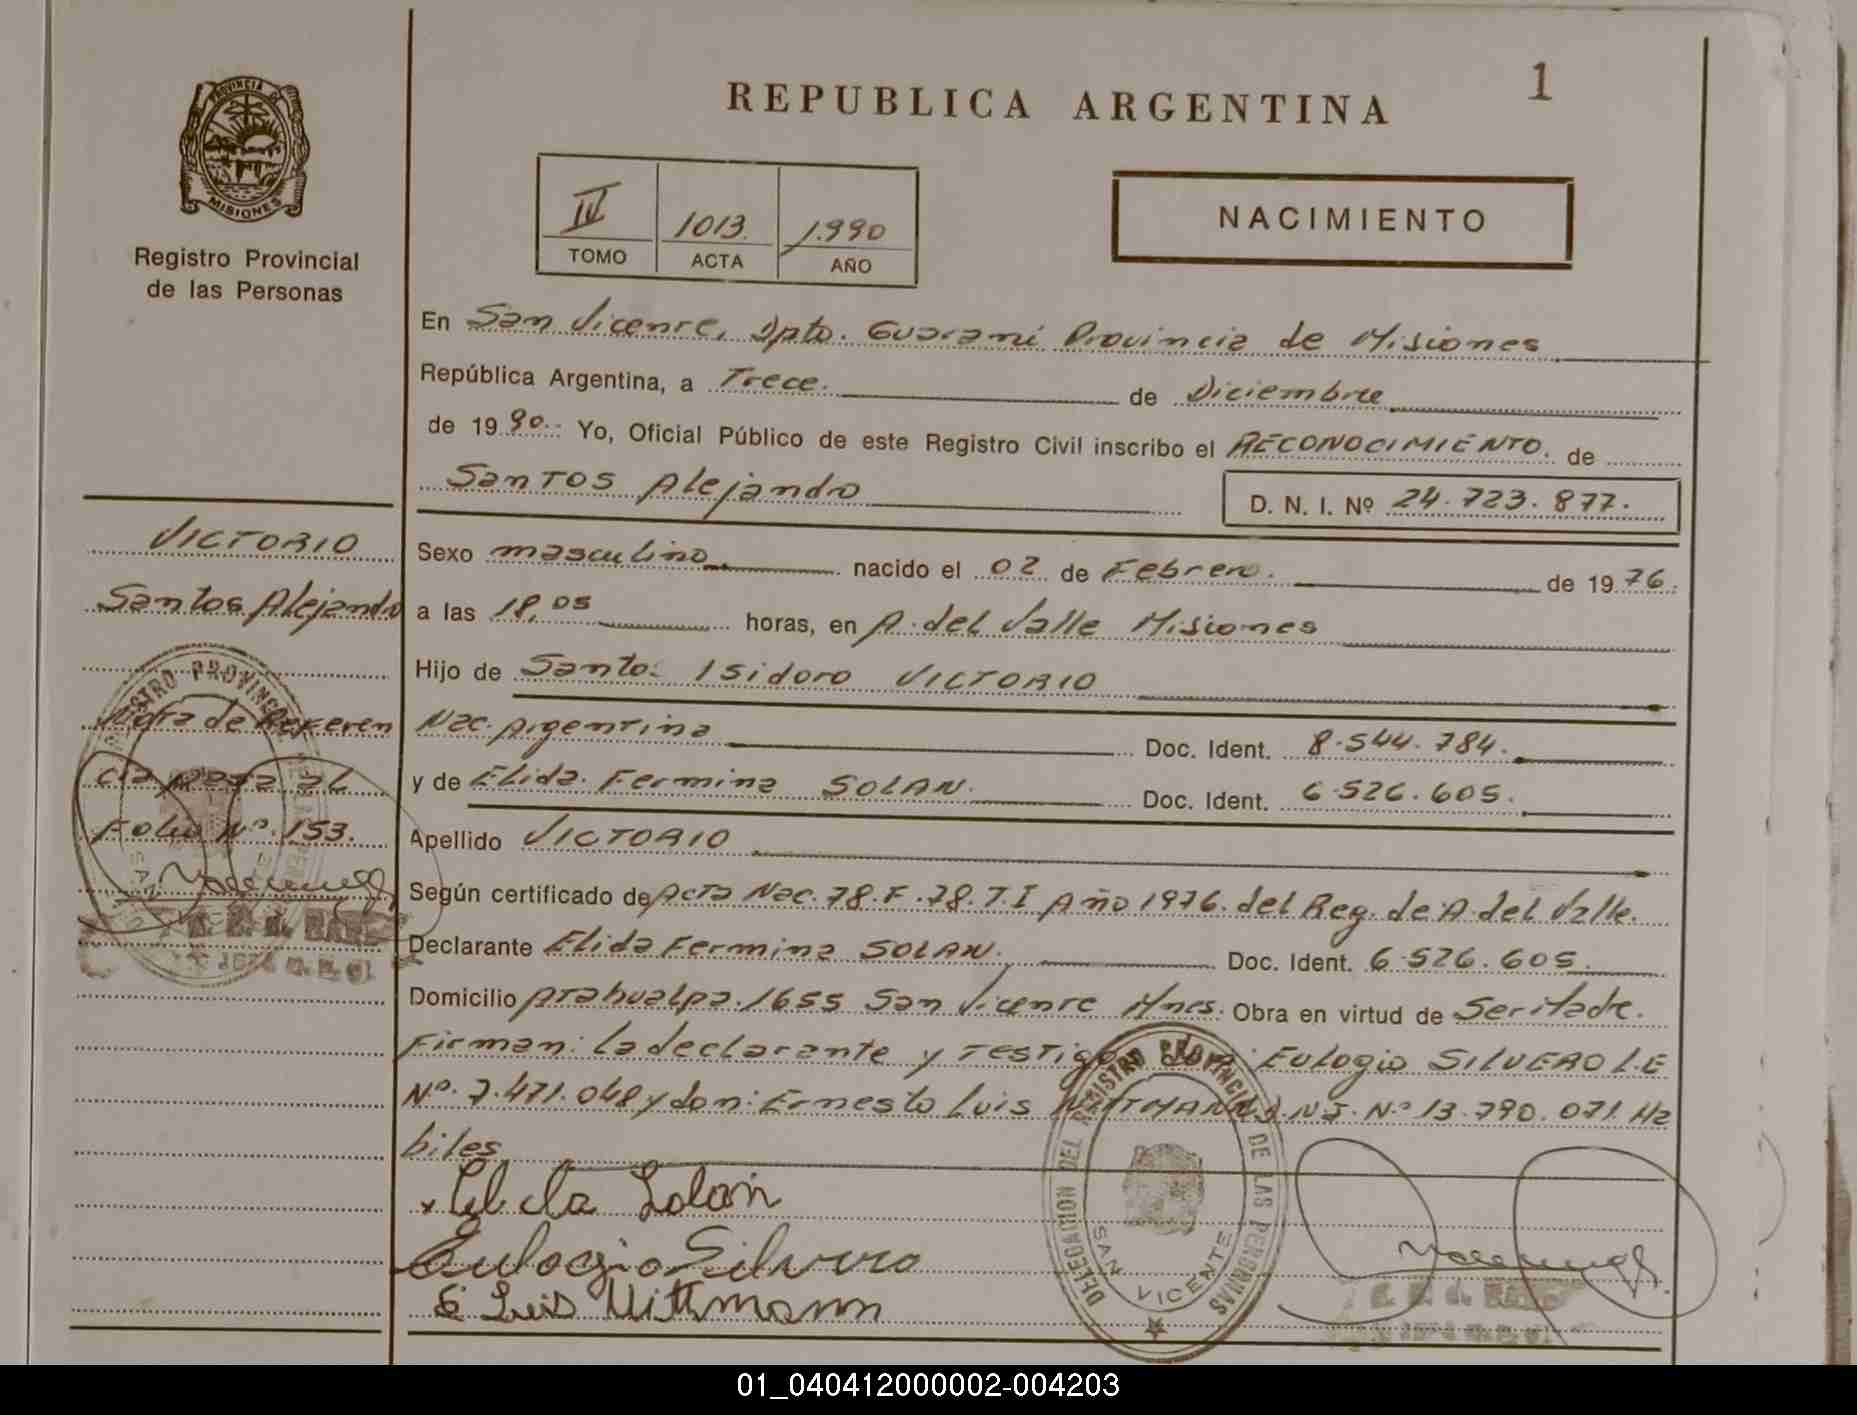 REPUBLICA ARGENTINA
1
PROVINCIA DE
MISIONES
Registro Provincial
de las Personas
IV
1013.
1.990
TOMO
ACTA
AÑO
NACIMIENTO
En San Vicente, Dpto. Guarani Provincia de Misiones
República Argentina, a Trece. de Diciembre
de 1990.- Yo, Oficial Público de este Registro Civil inscribo el RECONOCIMIENTO. de
Santos Alejandro
D. N. I. Nº 24.723.877.
VICTORIO
Santos Alejandro
Nota de Referen
cia Pasa al
Folio Nº. 153.
Sexo masculino nacido el 02 de Febrero. de 1976.
a las 18,05 horas, en A. del Valle Misiones
Hijo de Santo: Isidoro VICTORIO
Nac. Argentina Doc. Ident. 8.544.784.
y de Elida Fermina SOLAN. Doc. Ident. 6.526.605.
Apellido VICTORIO
Según certificado de Acta Nac. 78. F. 78. T. I Año 1976. del Reg. de A. del Valle.
Declarante Elida Fermina SOLAN. Doc. Ident. 6.526.605.
Domicilio Atahualpa. 1655 San Vicente Mnes. Obra en virtud de Ser Madre.
Firman: la declarante y Testigo Eulogio SILVERO L.E
Nº. 7.471.048 y don: Ernesto Luis WITTMANN D.N.I. Nº 13.790.071. Ha
biles
x Elida Solan
Eulogio Silvero
E Luis Wittmann
DELEGACION DEL REGISTRO PROVINCIAL DE LAS PERSONAS
SAN VICENTE
01_040412000002-004203